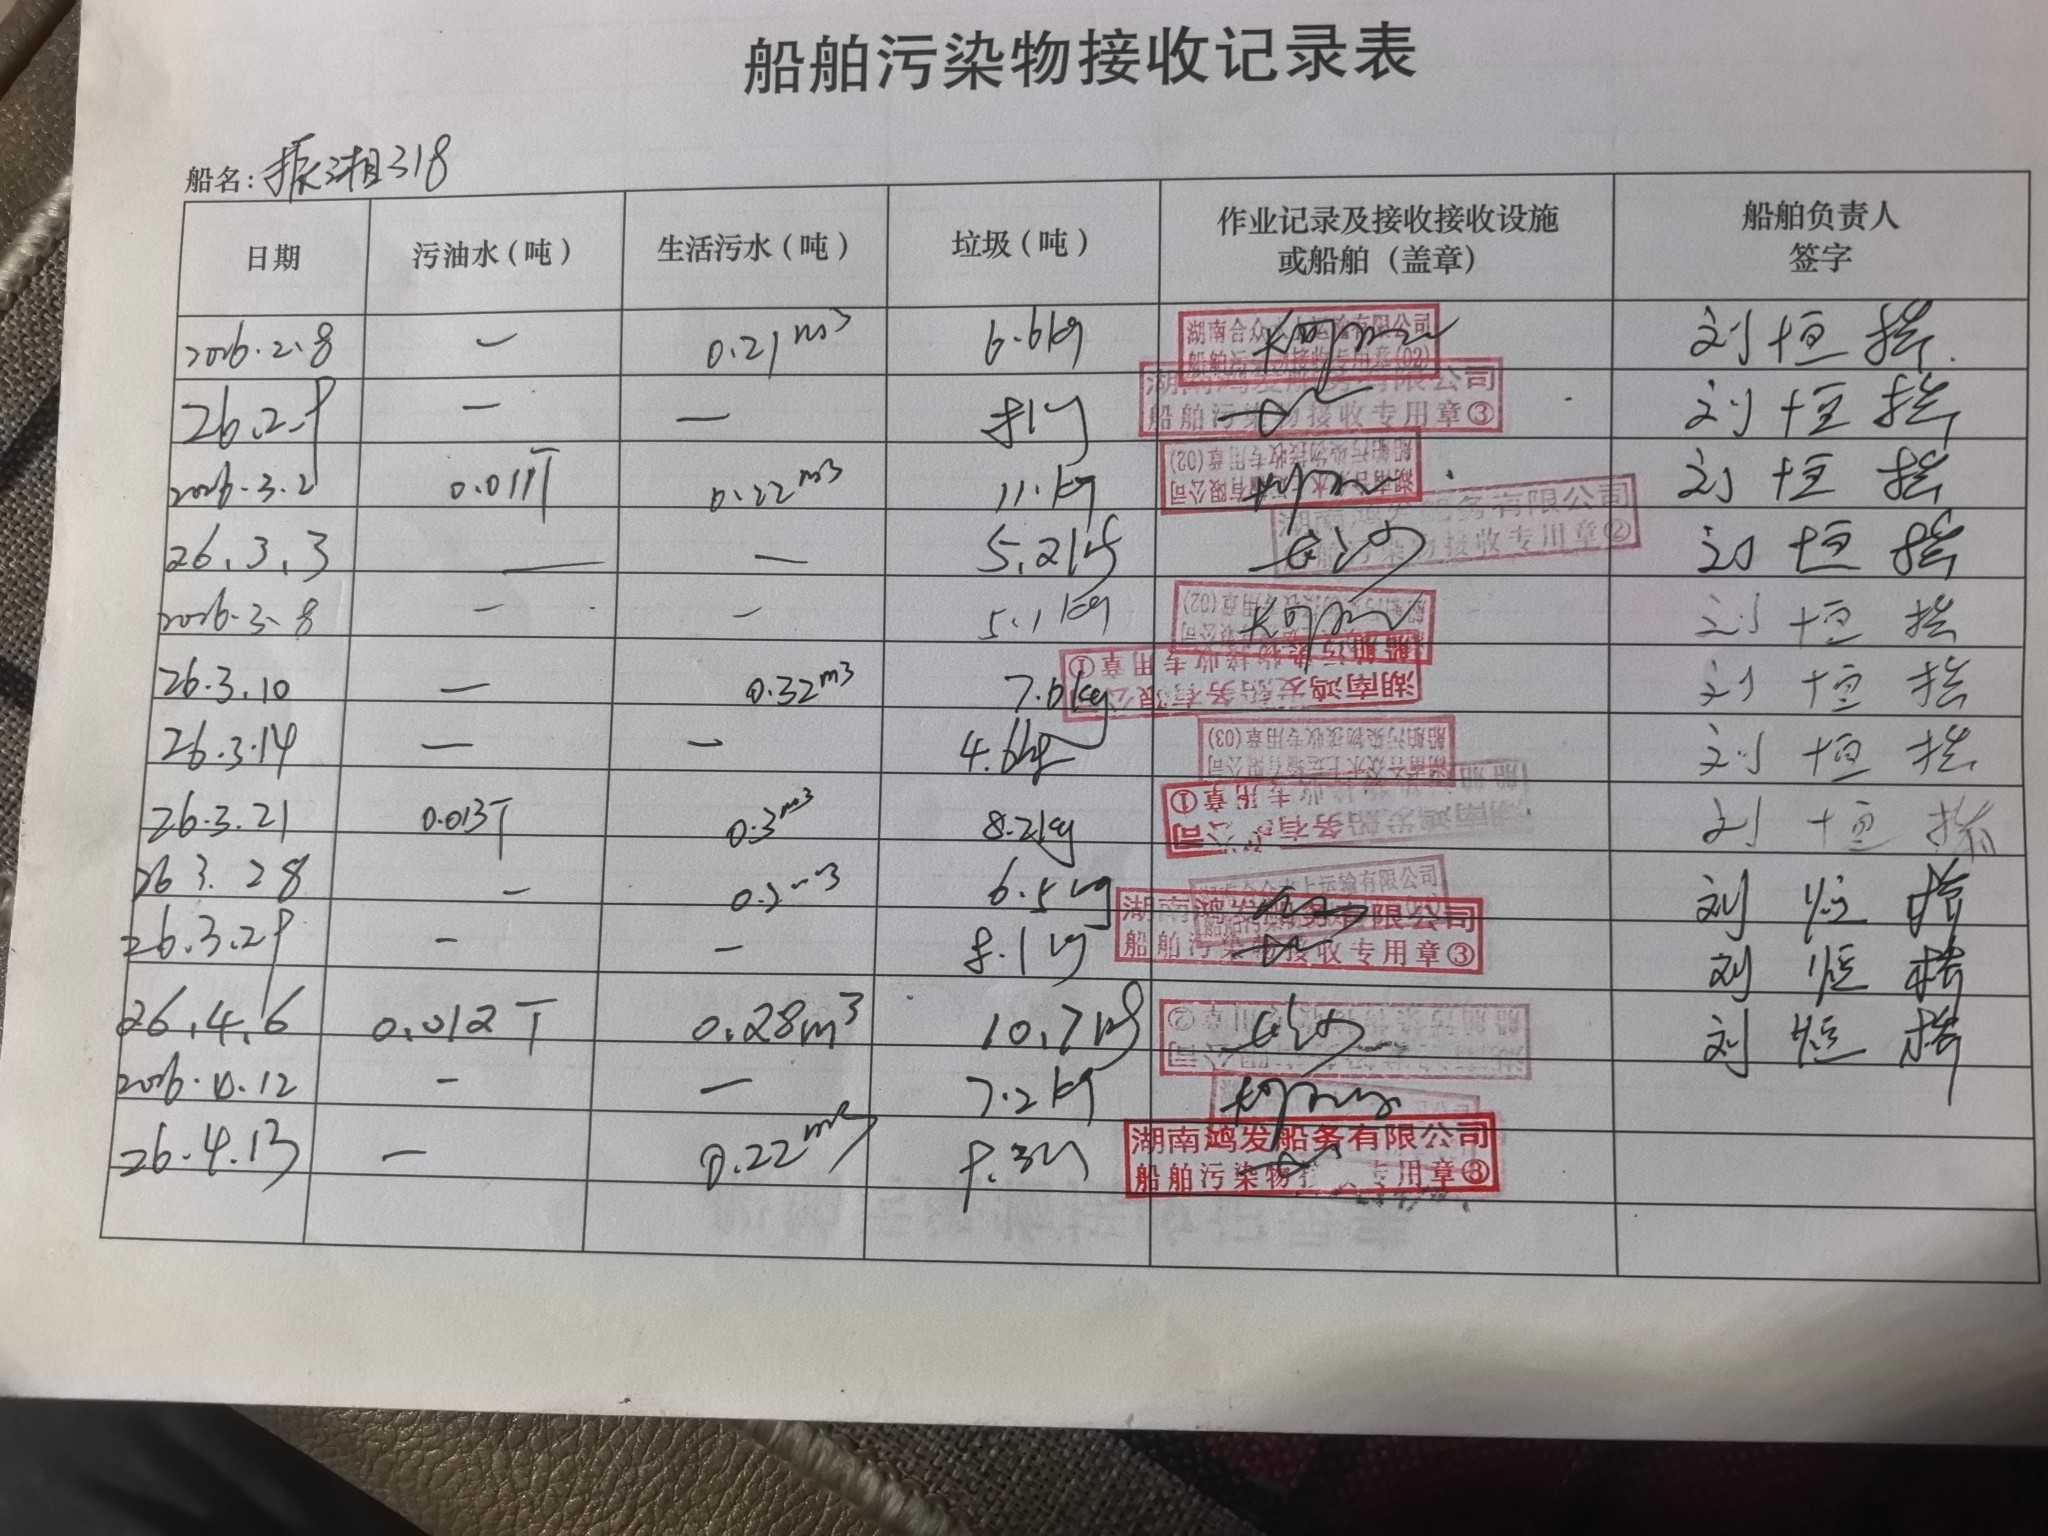 船舶污染物接收记录表
船名: 振湘318
日期 污油水(吨) 生活污水(吨) 垃圾(吨) 作业记录及接收接收设施或船舶(盖章) 船舶负责人签字
2026.2.8 — 0.21m³ 6.6kg 湖南合众水上运输有限公司 船舶污染物接收专用章(02) 刘恒
26.2.9 — — 湖南鸿发船务有限公司 船舶污染物接收专用章③ 刘恒
2026.3.2 0.011T 0.22m³ 11.kg 船舶污染物接收专用章(02) 刘恒
26.3.3 — — 5.2kg 湖南鸿发船务有限公司 船舶污染物接收专用章② 刘恒
2026.3.8 — — 5.1kg 船舶污染物接收专用章(02) 刘恒
26.3.10 — 0.32m³ 7.6kg 湖南鸿发船务有限公司 船舶污染物接收专用章① 刘恒
26.3.14 — — 4.6kg 湖南合众水上运输有限公司 船舶污染物接收专用章(03) 刘恒
26.3.21 0.013T 0.3m³ 8.2kg 湖南鸿发船务有限公司 专用章① 刘恒
26.3.28 — 6.5kg 湖南合众水上运输有限公司 刘恒
26.3.29 — — 8.1kg 湖南鸿发船务有限公司 船舶污染物接收专用章③ 刘恒
26.4.6 0.012T 0.28m³ 10.7kg 刘恒
2026.4.12 — — 7.2kg
26.4.13 — 0.22m³ 9.3kg 湖南鸿发船务有限公司 船舶污染物接 专用章③